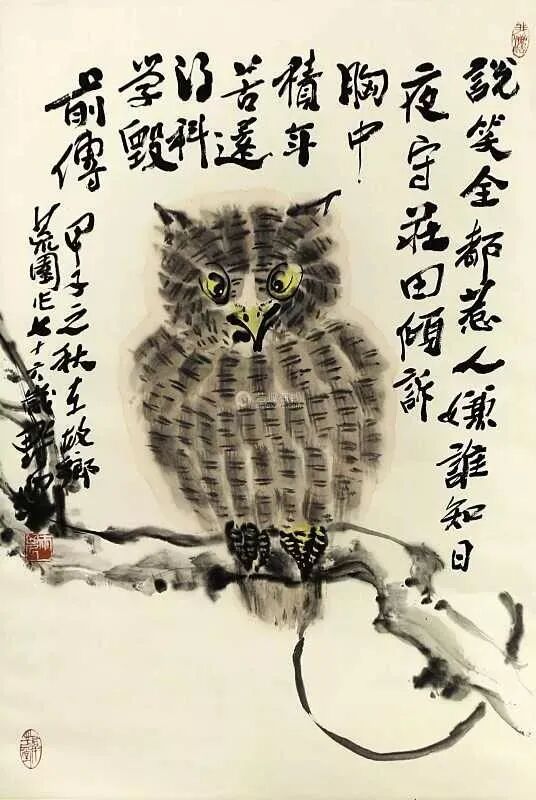 說笑全都惹人嫌誰知日
夜守莊田傾訴
胸中
積年
苦還
得科
学毀
前傳
甲子之秋在故鄉
荒園作七十六歲